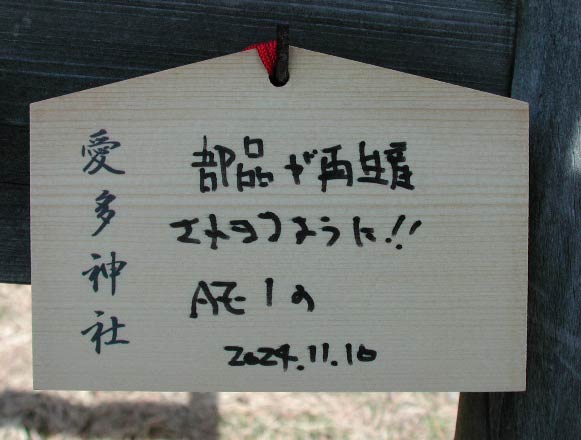 愛多神社
部品が再生産
されますように!!
AZ-1の
2024.11.10